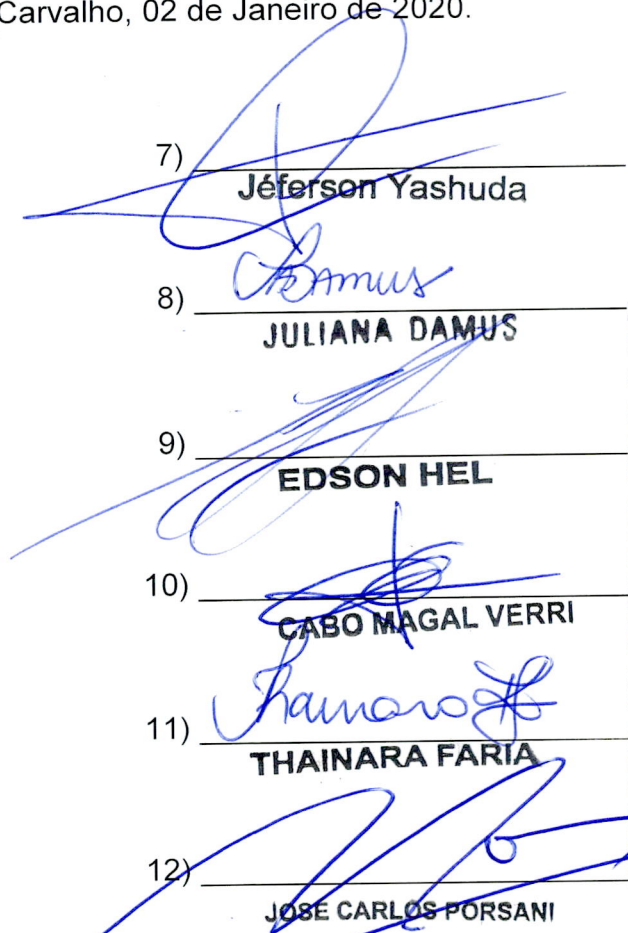 Carvalho, 02 de Janeiro de 2020.
7)
Jéferson Yashuda
JBDamus
8)
JULIANA DAMUS
9)
EDSON HEL
10)
CABO MAGAL VERRI
Thainara
11)
THAINARA FARIA
12)
JOSE CARLOS PORSANI